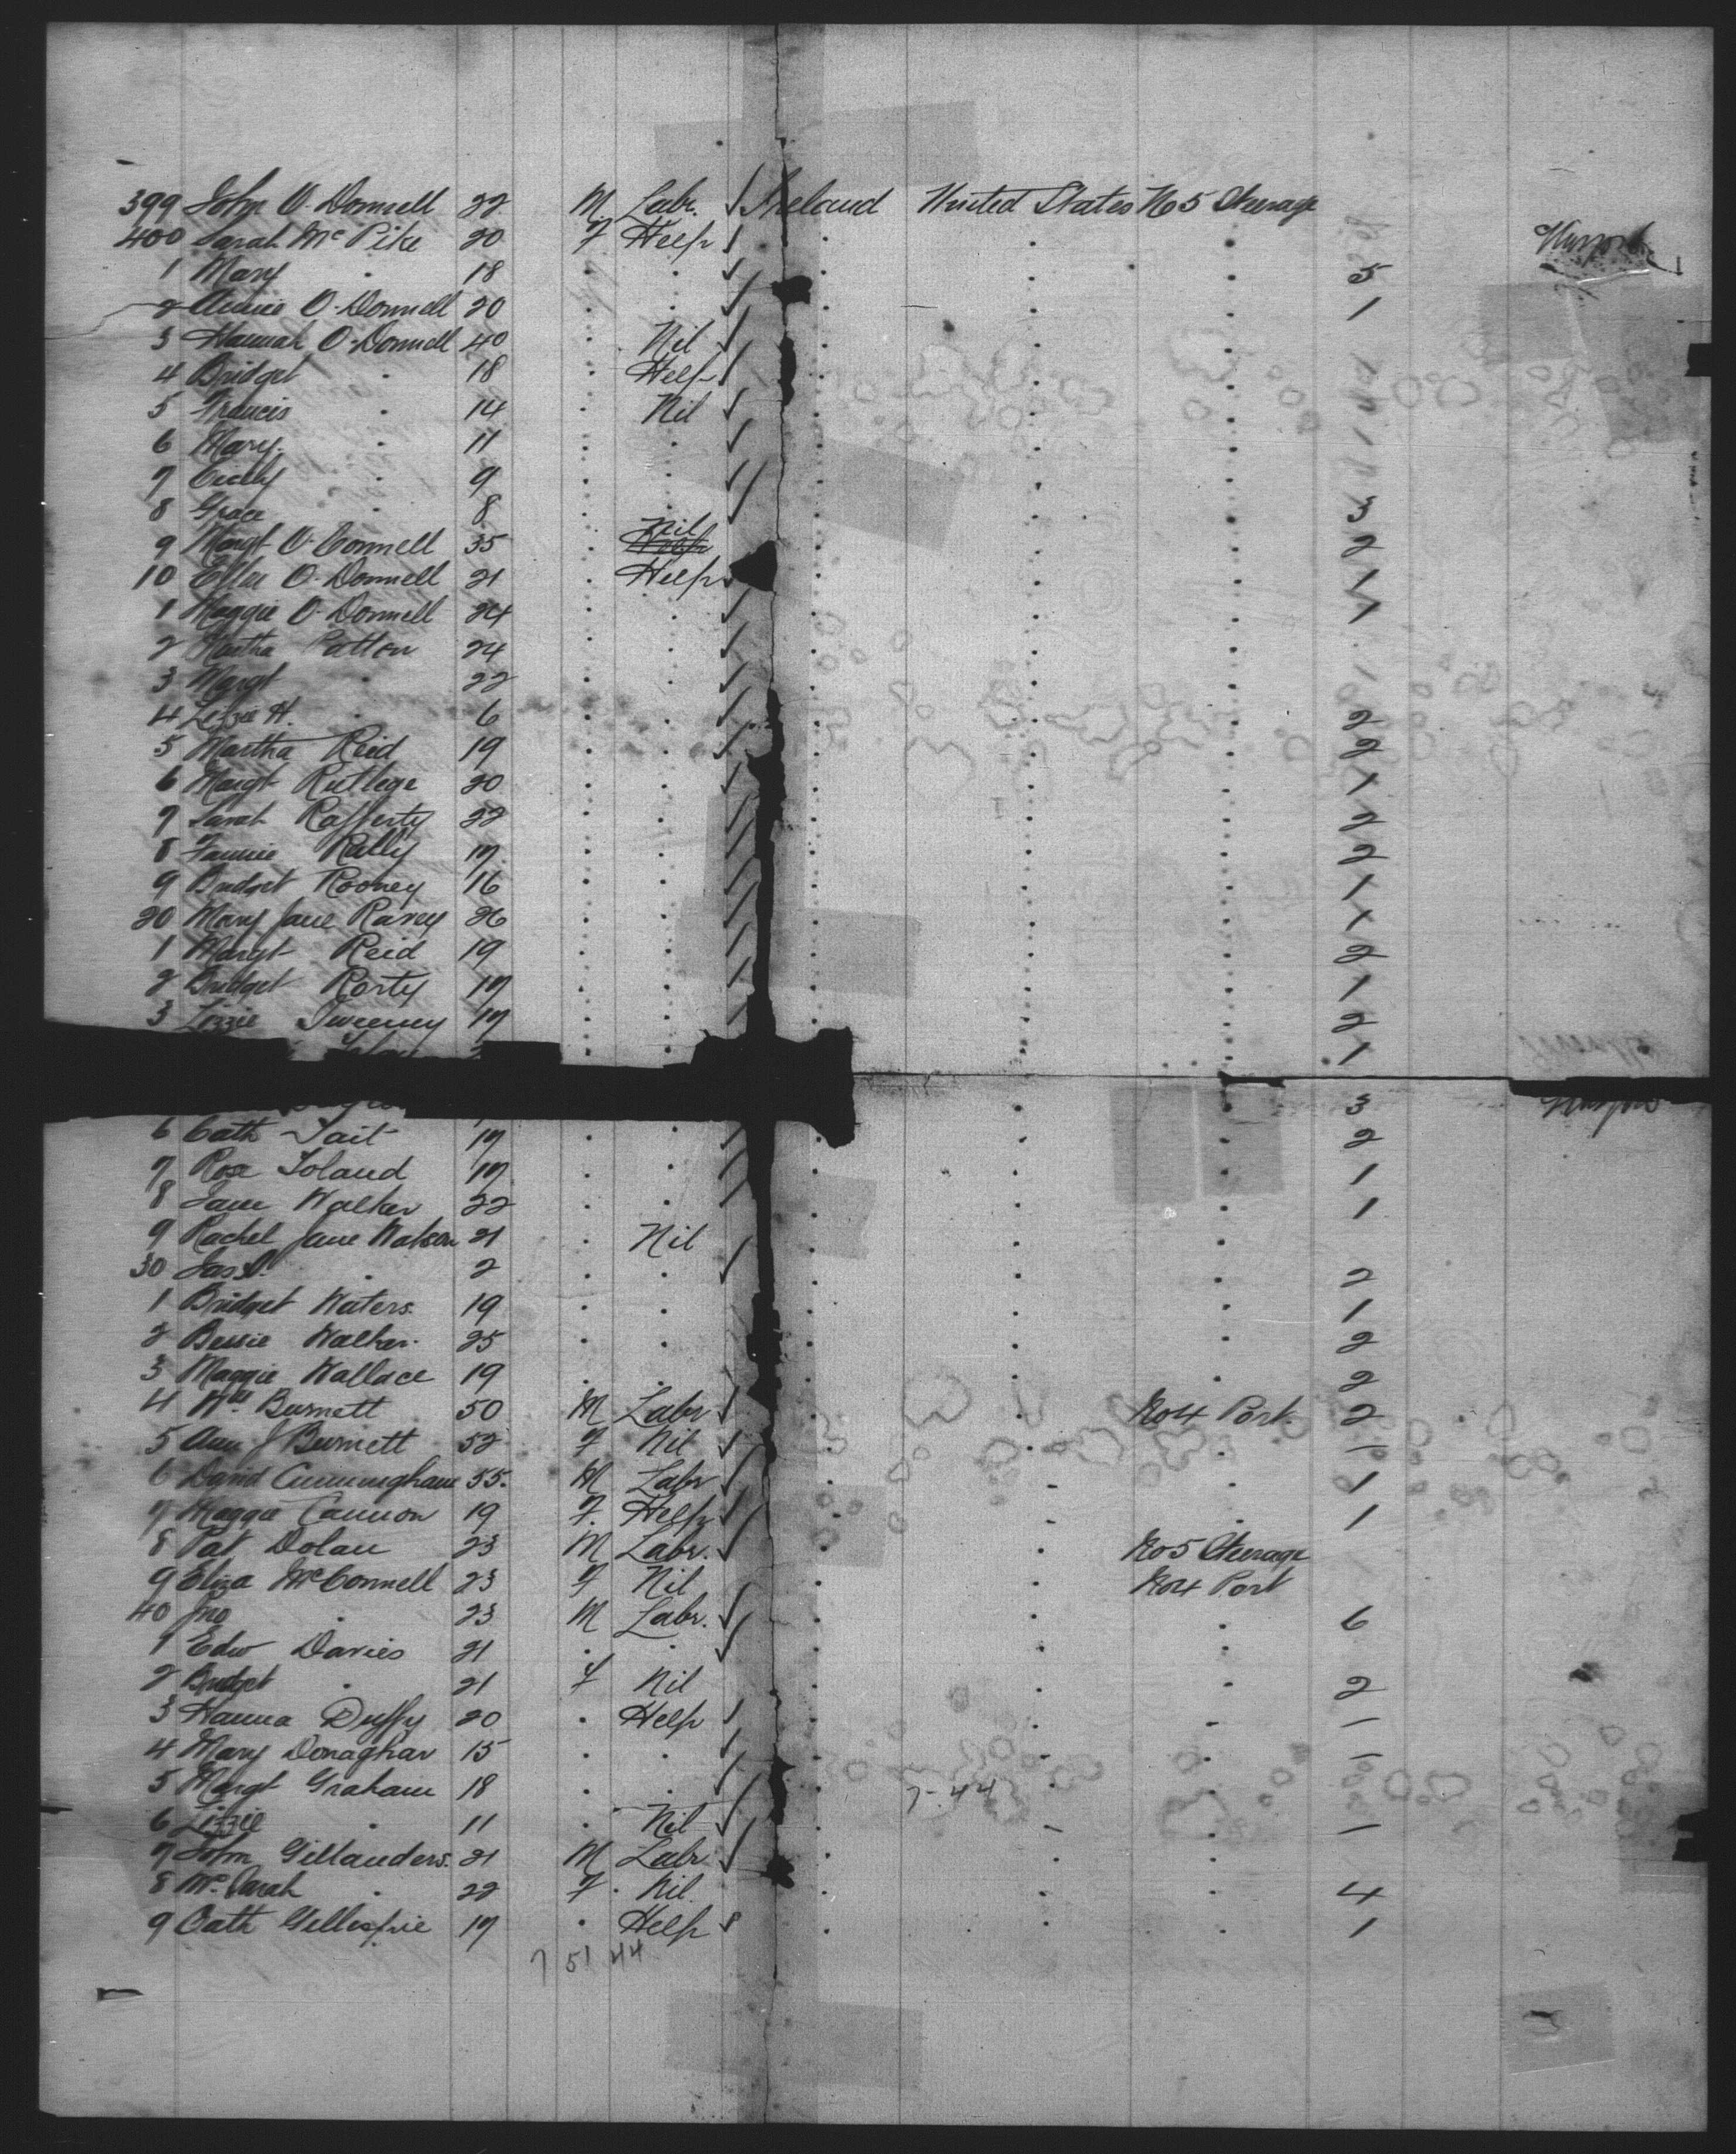 399 John O'Donnell 22 M. Labr. Ireland United States No 5 Steerage
400 Sarah McPike 20 F Help
1 Mary . 18 . . . . . 5
2 Annie O'Donnell 20 . . . . . 1
3 Hannah O'Donnell 40 . Nil . . .
4 Bridget . 18 . Help . . .
5 Francis . 14 . Nil . . .
6 Mary . 11 . . . . .
7 Cicely . 9 . . . . .
8 Grace . 8 . . . . . 3
9 Margt O'Connell 35 . Nil . . . 2
10 Ellen O'Donnell 21 . Help . . . 1
1 Maggie O'Donnell 24 . . . . . 1
2 Martha Patton 24 . . . . .
3 Margt . 22 . . . . .
4 Lizzie H. . 6 . . . . . 2
5 Martha Reid 19 . . . . . 2
6 Margt Rutlege 20 . . . . . 1
7 Sarah Rafferty 22 . . . . . 2
8 Fannie Rally 17 . . . . . 2
9 Bridget Rooney 16 . . . . . 1
20 Mary Jane Ravey 26 . . . . . 1
1 Margt Reid 19 . . . . . 2
2 Bridget Rorty 17 . . . . . 1
3 Lizzie Sweeney 17 . . . . . 2
1
3
6 Cath Tait 17 . . . . . 2
7 Rose Toland 17 . . . . . 1
8 Jane Walker 22 . . . . . 1
9 Rachel Jane Watson 21 . Nil . . .
30 Jas . 2 . . . . . 2
1 Bridget Waters 19 . . . . . 1
2 Bessie Walker 25 . . . . . 2
3 Maggie Wallace 19 . . . . . 2
4 Wm Burnett 50 M Labr . . No 4 Port. 2
5 Ann J Burnett 52 F Nil . . . –
6 David Cunningham 55. M Labr . . . 1
7 Maggie Cannon 19 F. Help . . . 1
8 Pat Dolan 23 M Labr. . . No 5 Steerage
9 Eliza McConnell 23 F Nil . . No 4 Port
40 Jno . 23 M Labr. . . . 6
1 Edw Davies 21 . . . . .
2 Bridget . 21 F Nil . . . 2
3 Hanna Duffy 20 . Help . . . –
4 Mary Donaghar 15 . . . . . –
5 Margt Graham 18 . . 7-44 . .
6 Lizzie . 11 . Nil . . . –
7 John Gillanders 21 M Labr . . .
8 Mrs Sarah . 22 F. Nil . . . 4
9 Cath Gillespie 17 . Help . . . 1
7 51 44